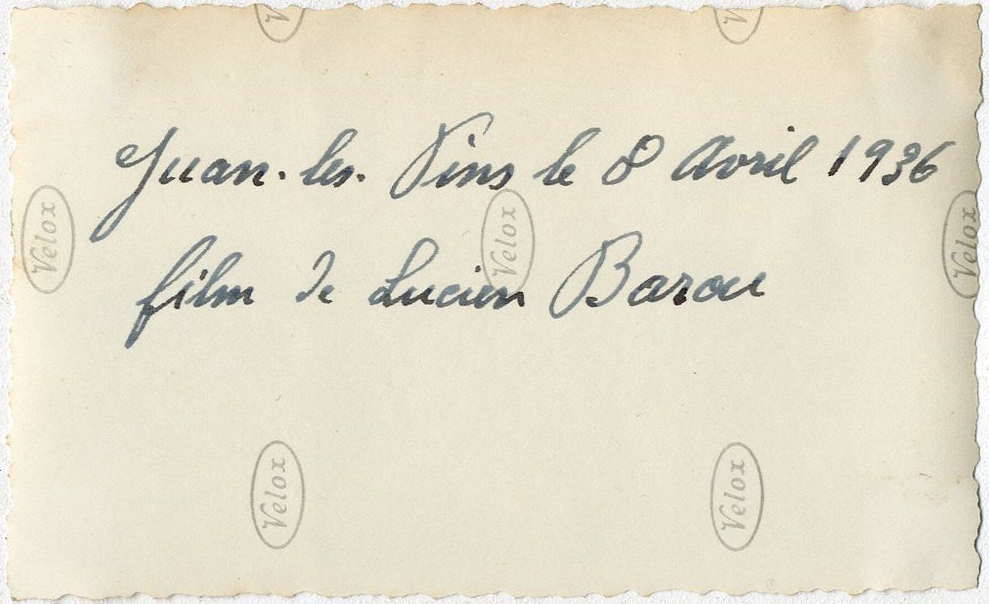 Velox Velox
Juan-les-Pins le 8 Avril 1936
Velox Velox Velox
film de Lucien Barou
Velox Velox